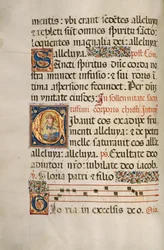 mentis: ubi erant sedētes alleluya
et repleti sūt omnes spiritu sācto:
loquentes magnalia dei: alleluya
Sancti spiritus dñe corda no
stra mundet infusio: et sui roris in
tima aspersione fecundet. Per dñm
in unitate eiusdē. In sollemnitate sacra
tissimi corporis christi.
Cibavit eos ex adipe frumē
ti alleluya: et de petra
melle saturavit eos all
alleluya. alleluya. ps. Exultate deo
adiutori nr̄o: iubilate deo iacob.
Gloria patri et filio
Gloria in excelsis deo.